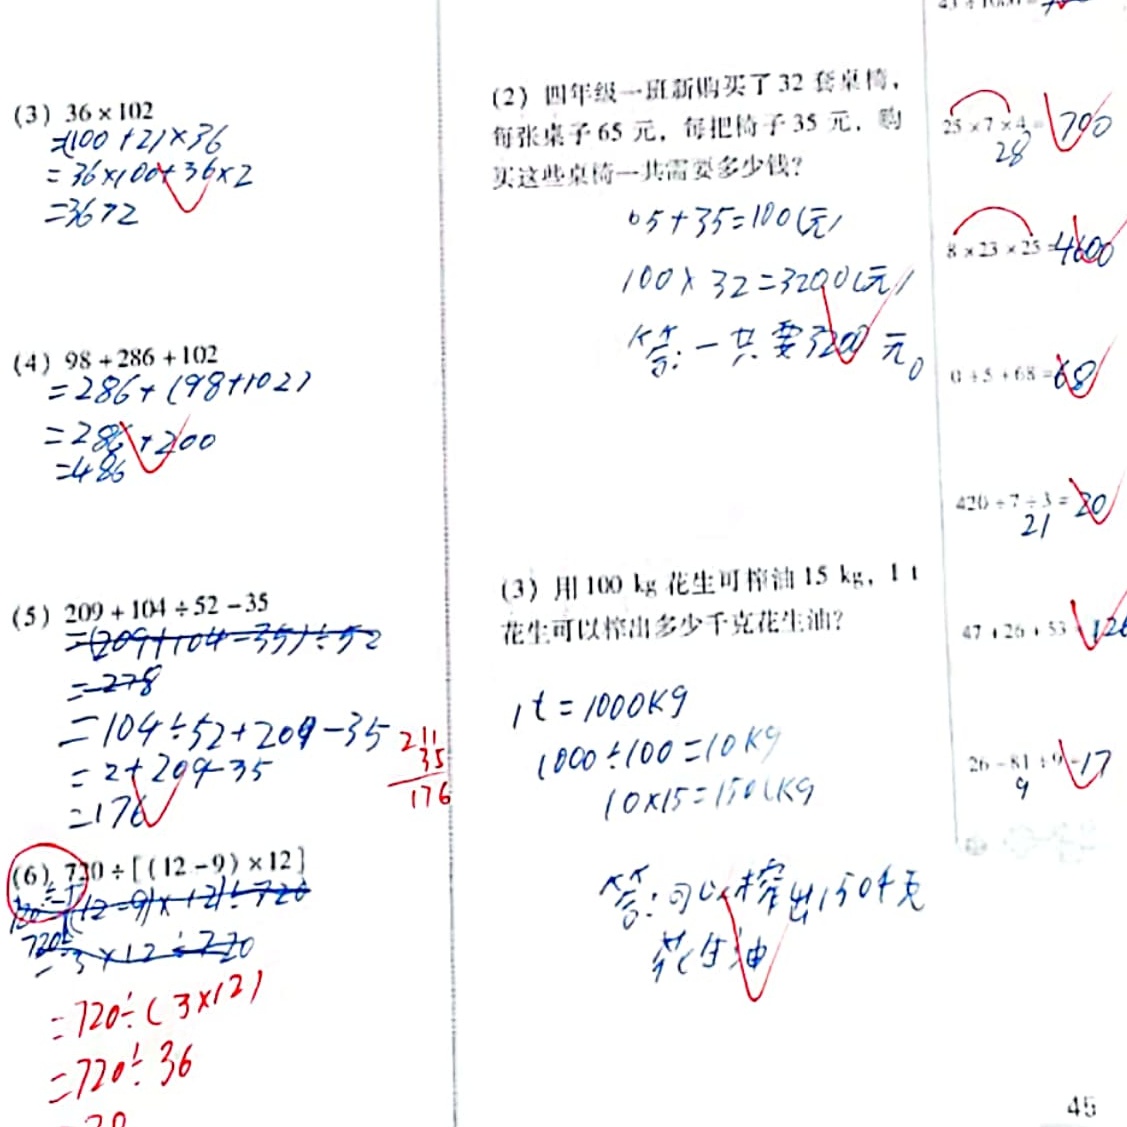 (3) 36×102
=(100+2)×36
=36×100+36×2
=3672
(4) 98+286+102
=286+(98+102)
=286+200
=486
(5) 209+104÷52-35
=(209+104-35)÷52
=278
=104÷52+209-35
=2+209-35
=176
211
35
176
(6) 720÷[(12-9)×12]
[(12-9)×12]÷720
720÷
=3×12÷720
=720÷(3×12)
=720÷36
=20
(2) 四年级一班新购买了32套桌椅,
每张桌子65元,每把椅子35元,购
买这些桌椅一共需要多少钱?
65+35=100(元)
100×32=3200(元)
答:一共要3200元。
(3) 用100 kg花生可榨油15 kg,1 t
花生可以榨出多少千克花生油?
1t=1000Kg
1000÷100=10Kg
10×15=150(Kg
答:可以榨出150千克
花生油
25×7×4=700
28
8×23×25=4600
0÷5+68=68
420÷7÷3=20
21
47+26+53=126
26-81÷9=17
9
45